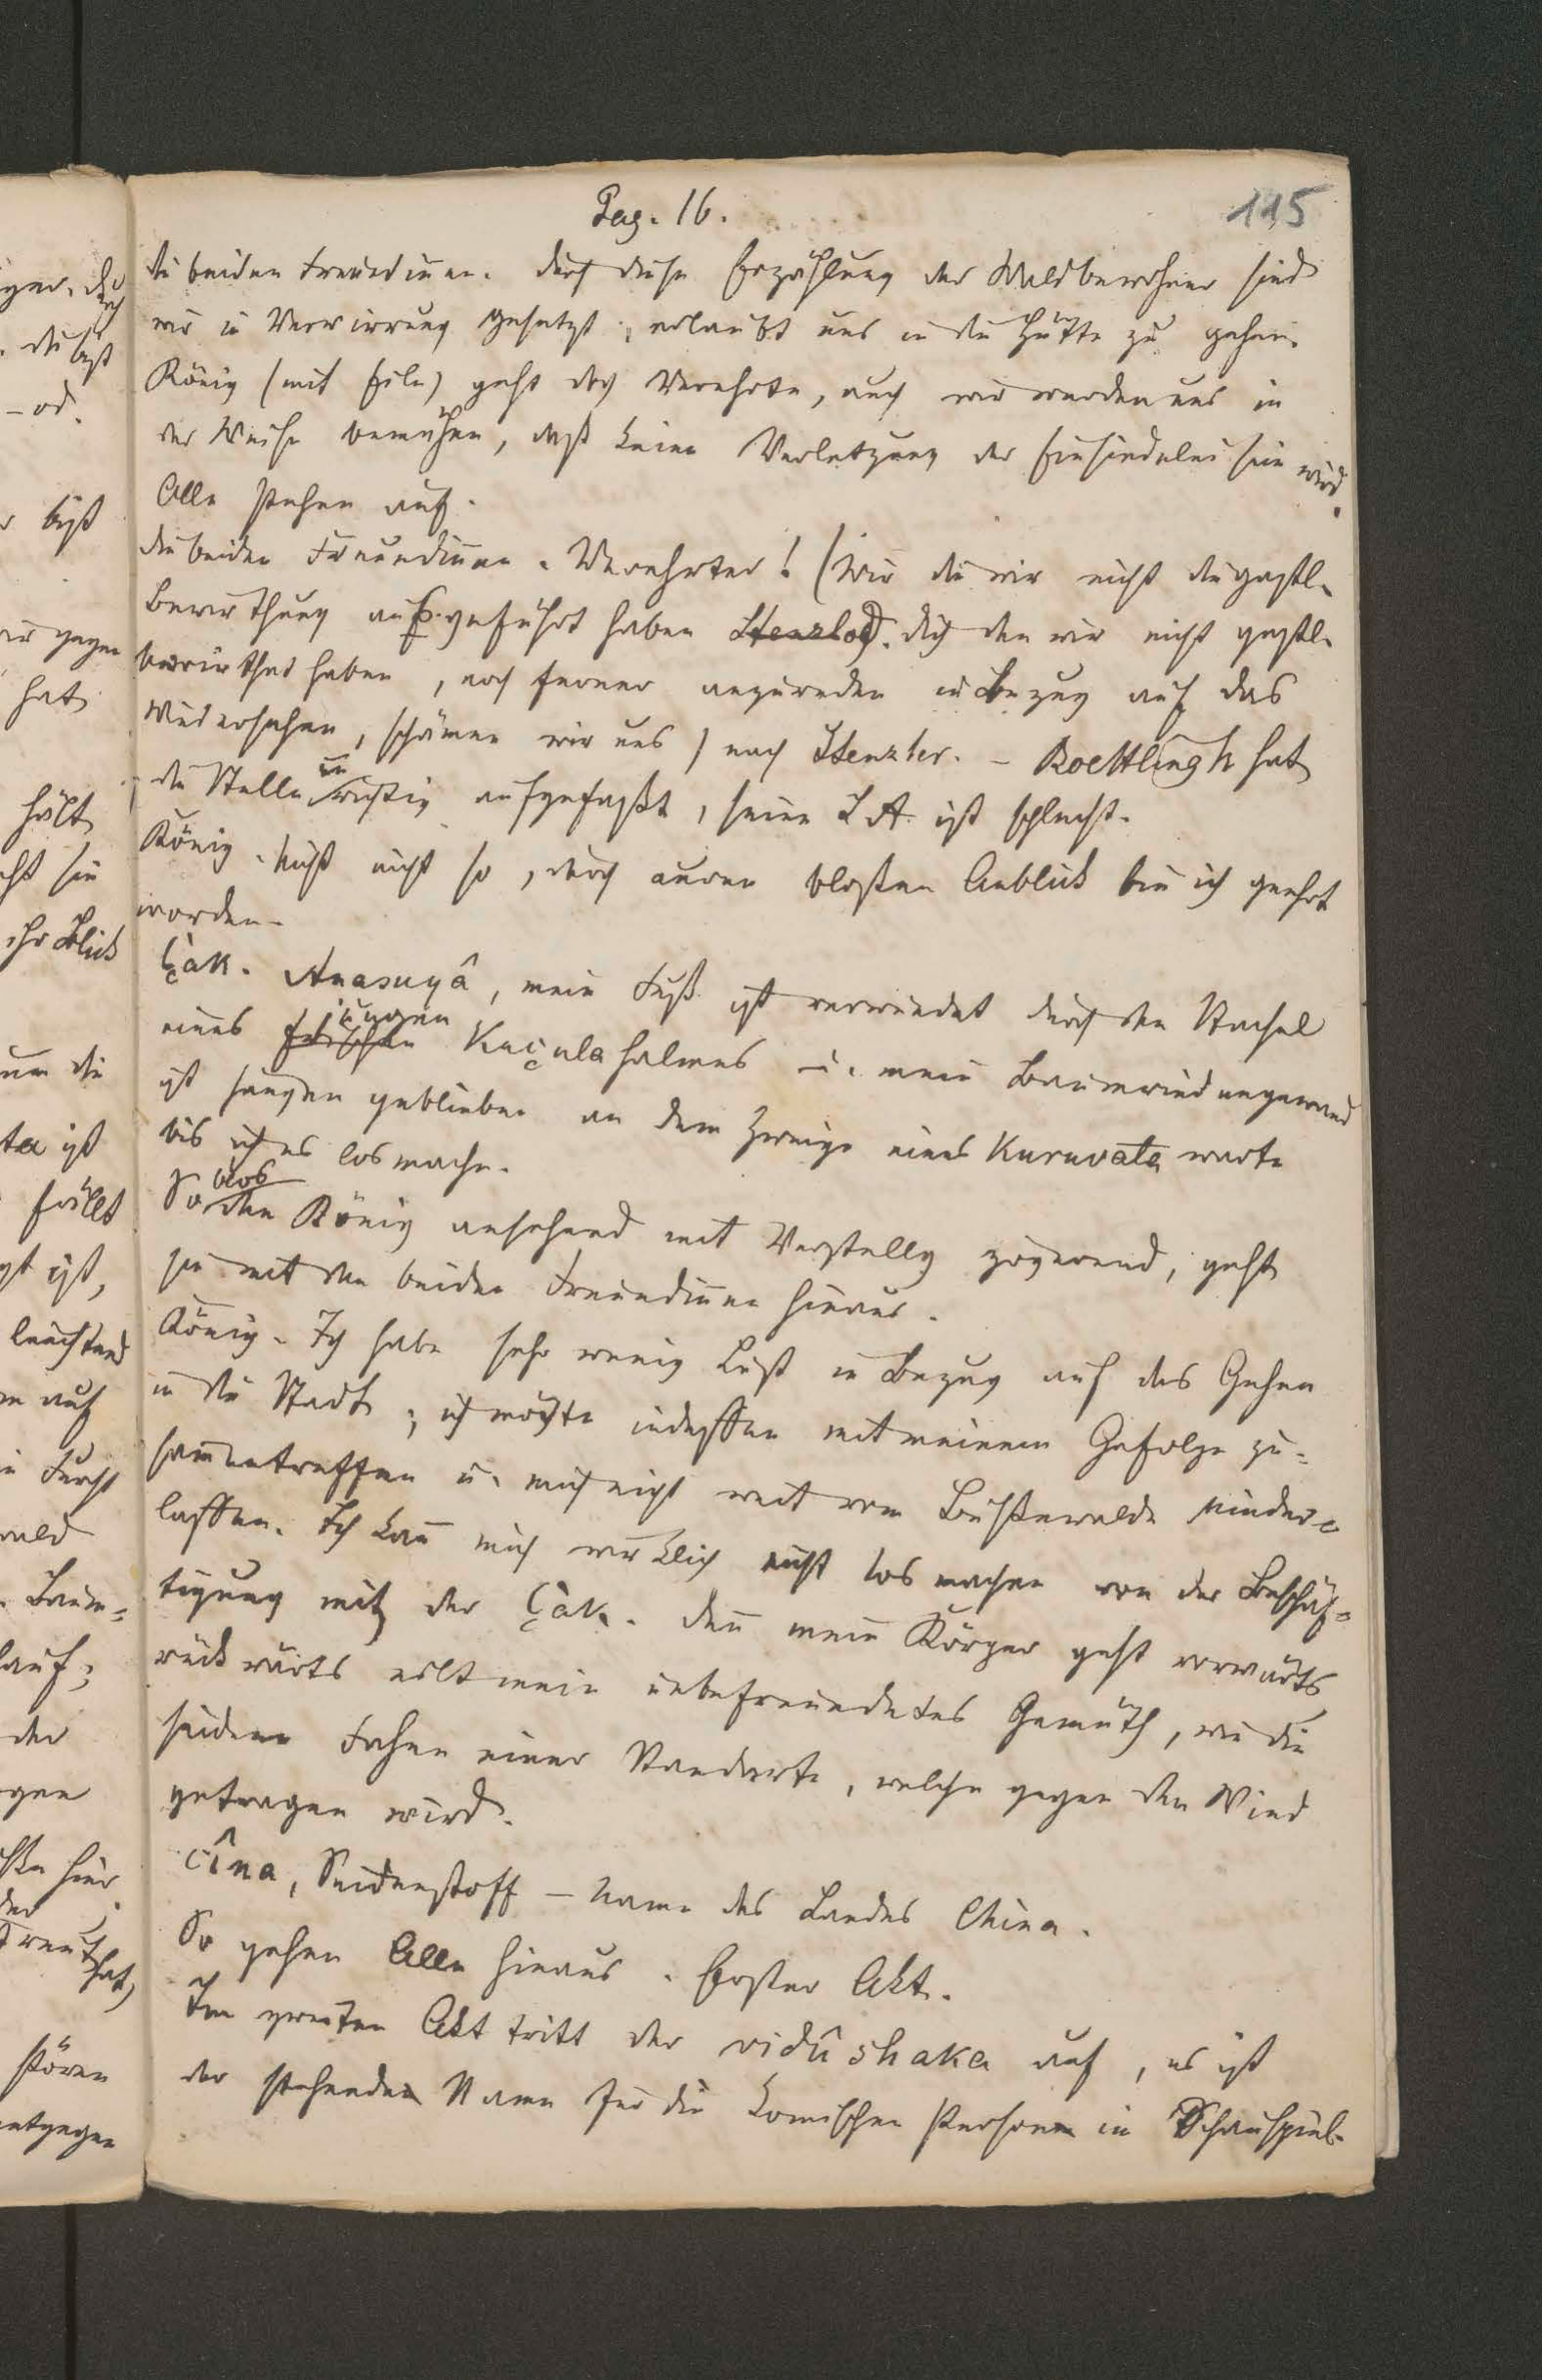 Pag. 16.
115
die beiden Freundinnen. durch diese Erzählung der Waldbewohner sind
wir in Verwirrung gesetzt, erlaubt uns in die Hütte zu gehen.
König (mit Eile) geht doch Verehrte, auch wir werden uns in
der Weise bemühen, daß keine Verletzung der Einsiedelei sein wird.
Alle stehen auf.
die beiden Freundinnen. Verehrter! (Wir die wir nicht die gastl.
Bewirthung ausgeführt haben Stenzler). dich den wir nicht gastl.
bewirthet haben, noch ferner anzureden in Bezug auf das
Wiedersehen, schämen wir uns) nach Stenzler. – Boethlingk hat
die Stelle unrichtig aufgefaßt, seine LA ist schlecht.
König. Nicht nicht so, durch euren bloßen Anblick bin ich geehrt
worden.
Çak. Anasuyâ, mein Fuß ist verwundet durch den Stachel
eines frischen jungen Kuçulahalmes u. mein Baumrindengewand
ist hangen geblieben an dem Zweige eines Kuruvata warte
bis ich es los mache.
So blos den König ansehend mit Verstellg zögerend, geht
sie mit den beiden Freundinnen hinaus.
König. Ich habe sehr wenig Lust in Bezug auf das Gehen
in die Stadt; ich möchte indessen mit meinem Gefolge zu-
sammentreffen u. mich nicht weit vom Bußerwalde nieder-
lassen. Ich kann mich wirklich nicht los machen von der Beschäf-
tigung mit der Çak. denn mein Körper geht vorwärts
rückwärts eilt mein unbefreundetes Gemüth, wie die
seidene Fahne einer Standarte, welche gegen den Wind
getragen wird.
cîna, Seidenstoff – Name des Landes China.
So gehen Alle hinaus. Erster Akt.
Im zweiten Akt tritt der vidûshaka auf, es ist
der stehende Name für die komischen Person in Schauspiel.